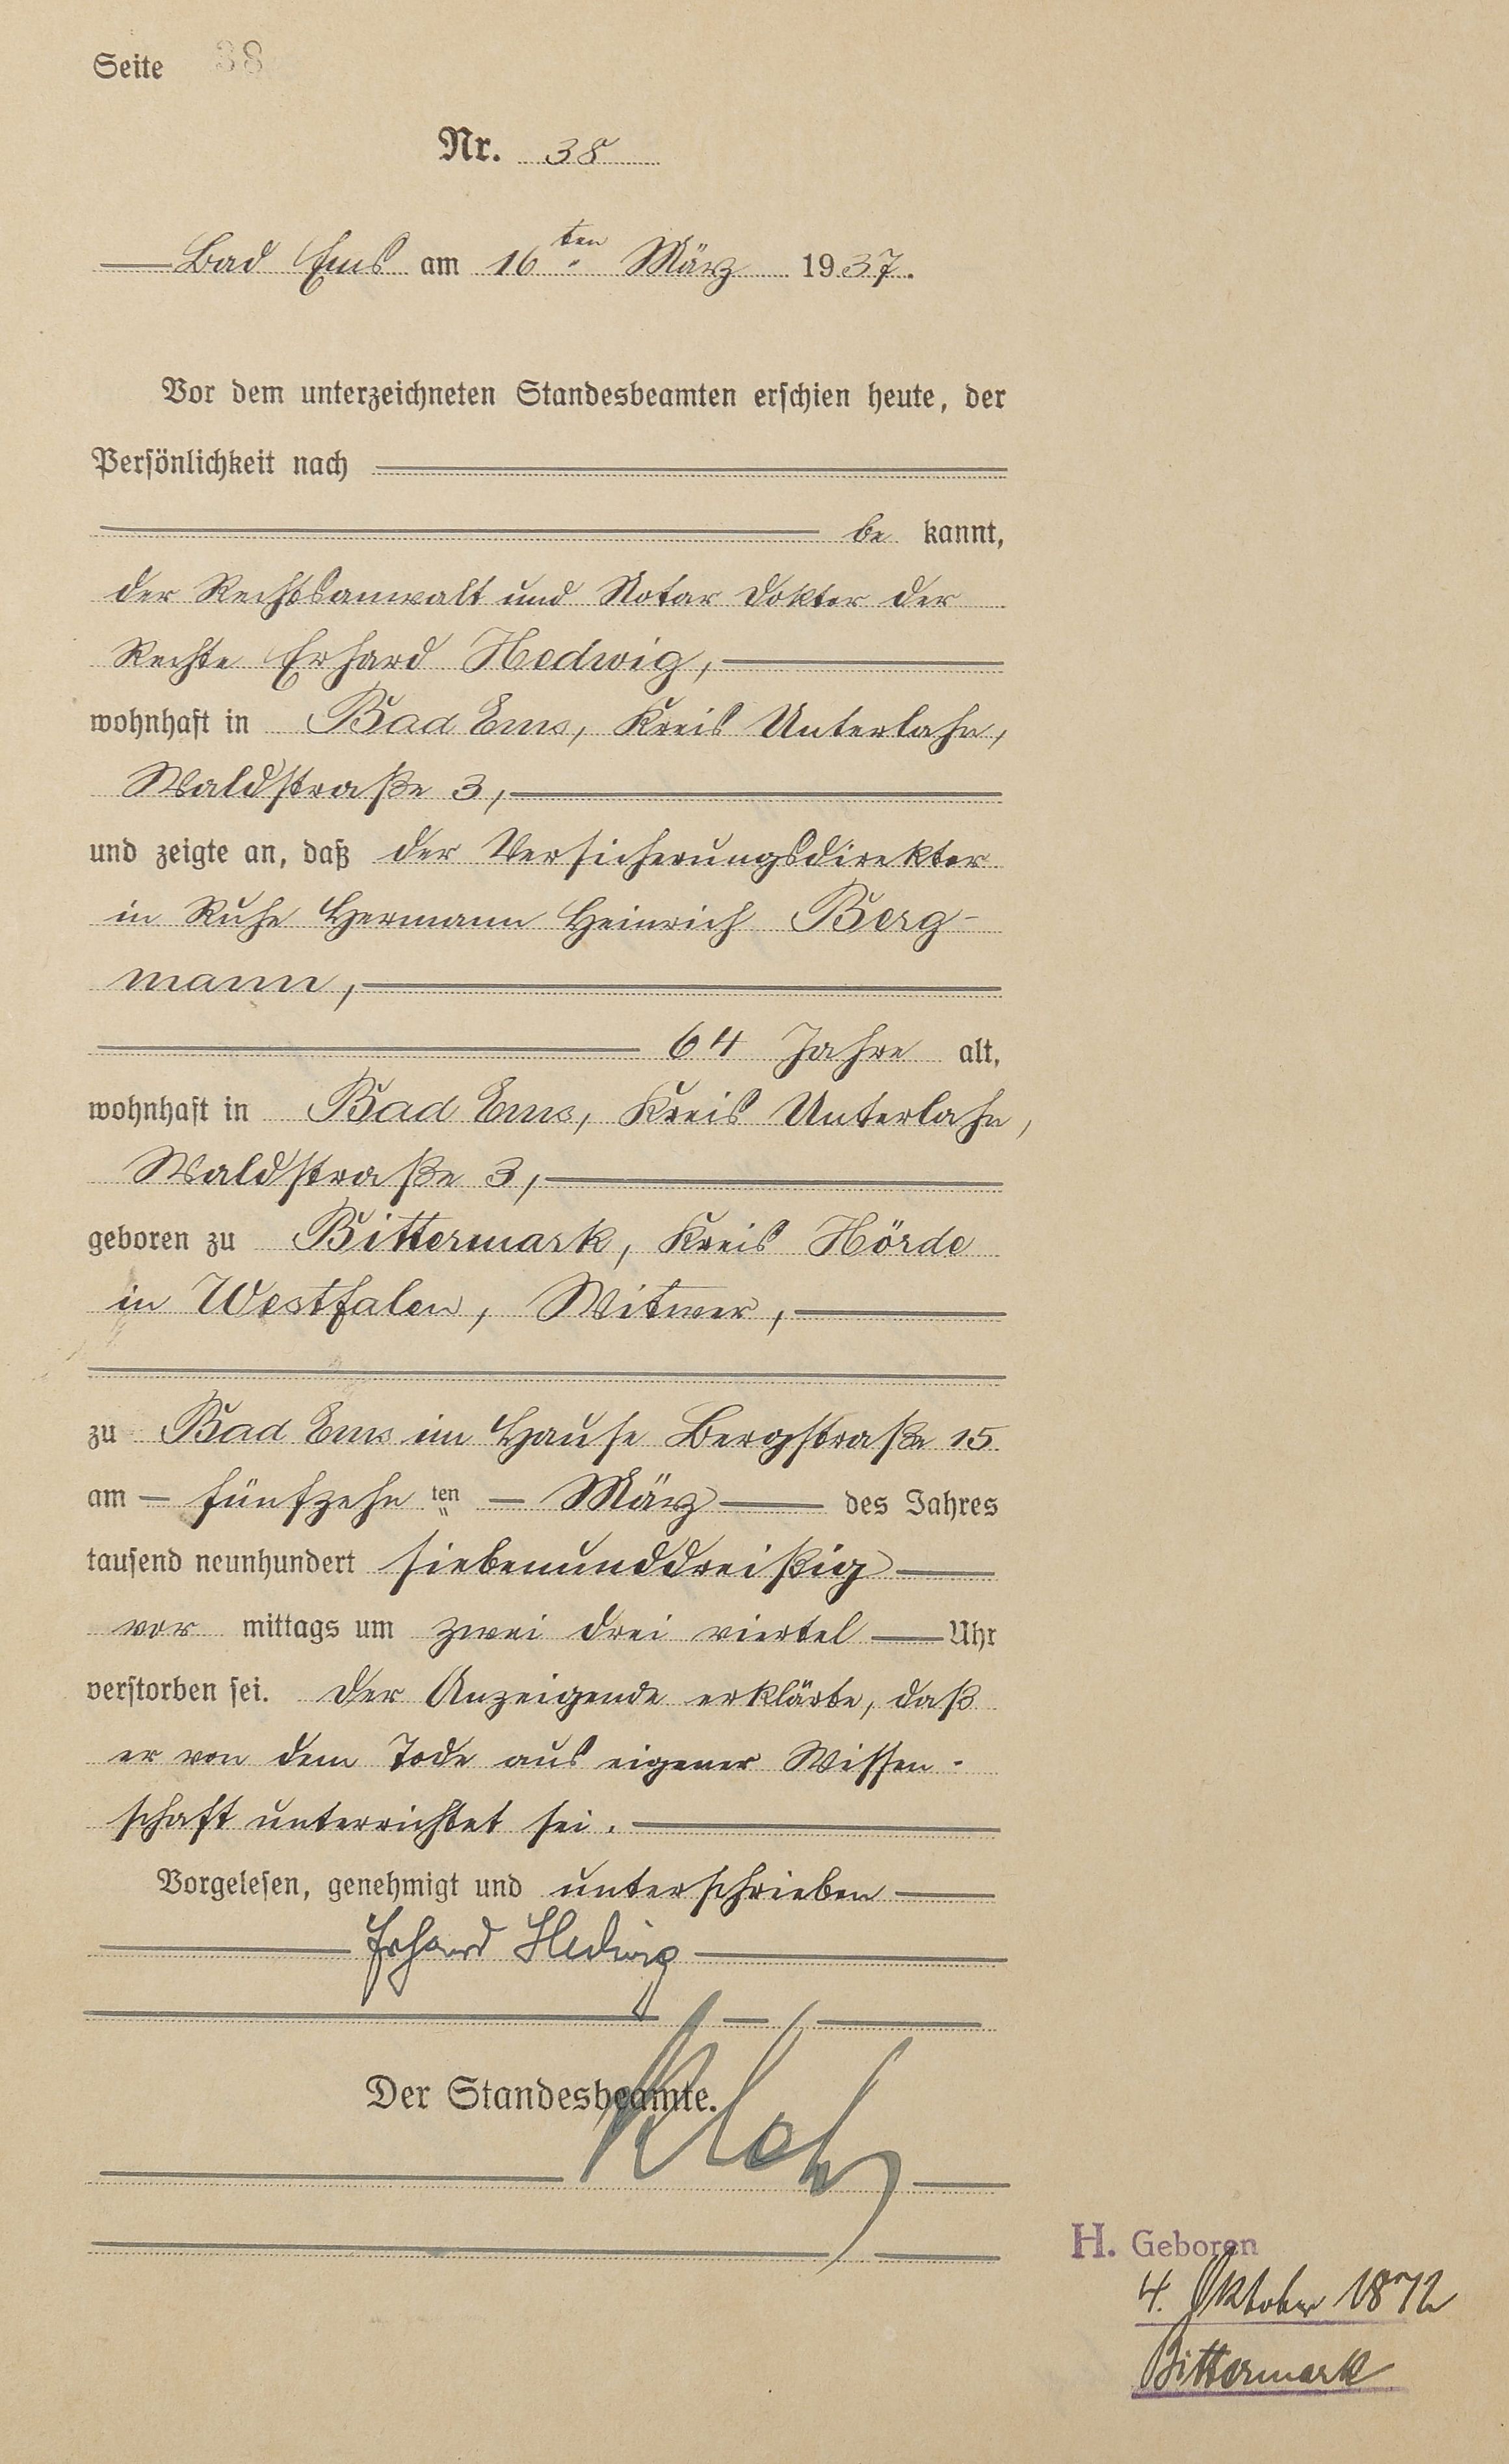 Seite 38
Nr. 38
Bad Ems am 16ten März 1937.
Vor dem unterzeichneten Standesbeamten erschien heute, der
Persönlichkeit nach
be kannt,
der Rechtsanwalt und Notar Doktor der
Rechte Erhard Hedwig,
wohnhaft in Bad Ems, Kreis Unterlahn,
Waldstraße 3,
und zeigte an, daß der Versicherungsdirektor
in Ruhe Hermann Heinrich Berg-
mann,
64 Jahre alt,
wohnhaft in Bad Ems, Kreis Unterlahn,
Waldstraße 3,
geboren zu Bittermark, Kreis Hörde
in Westfalen, Witwer,
zu Bad Ems im Hause Bergstraße 15
am fünfzehn ten März des Jahres
tausend neunhundert siebenunddreißig
vor mittags um zwei drei viertel Uhr
verstorben sei. Der Anzeigende erklärte, daß
er von dem Tode aus eigener Wissen-
schaft unterrichtet sei.
Vorgelesen, genehmigt und unterschrieben
Erhard Hedwig
Der Standesbeamte.
H. Geboren
4. Oktober 1872
Bittermark